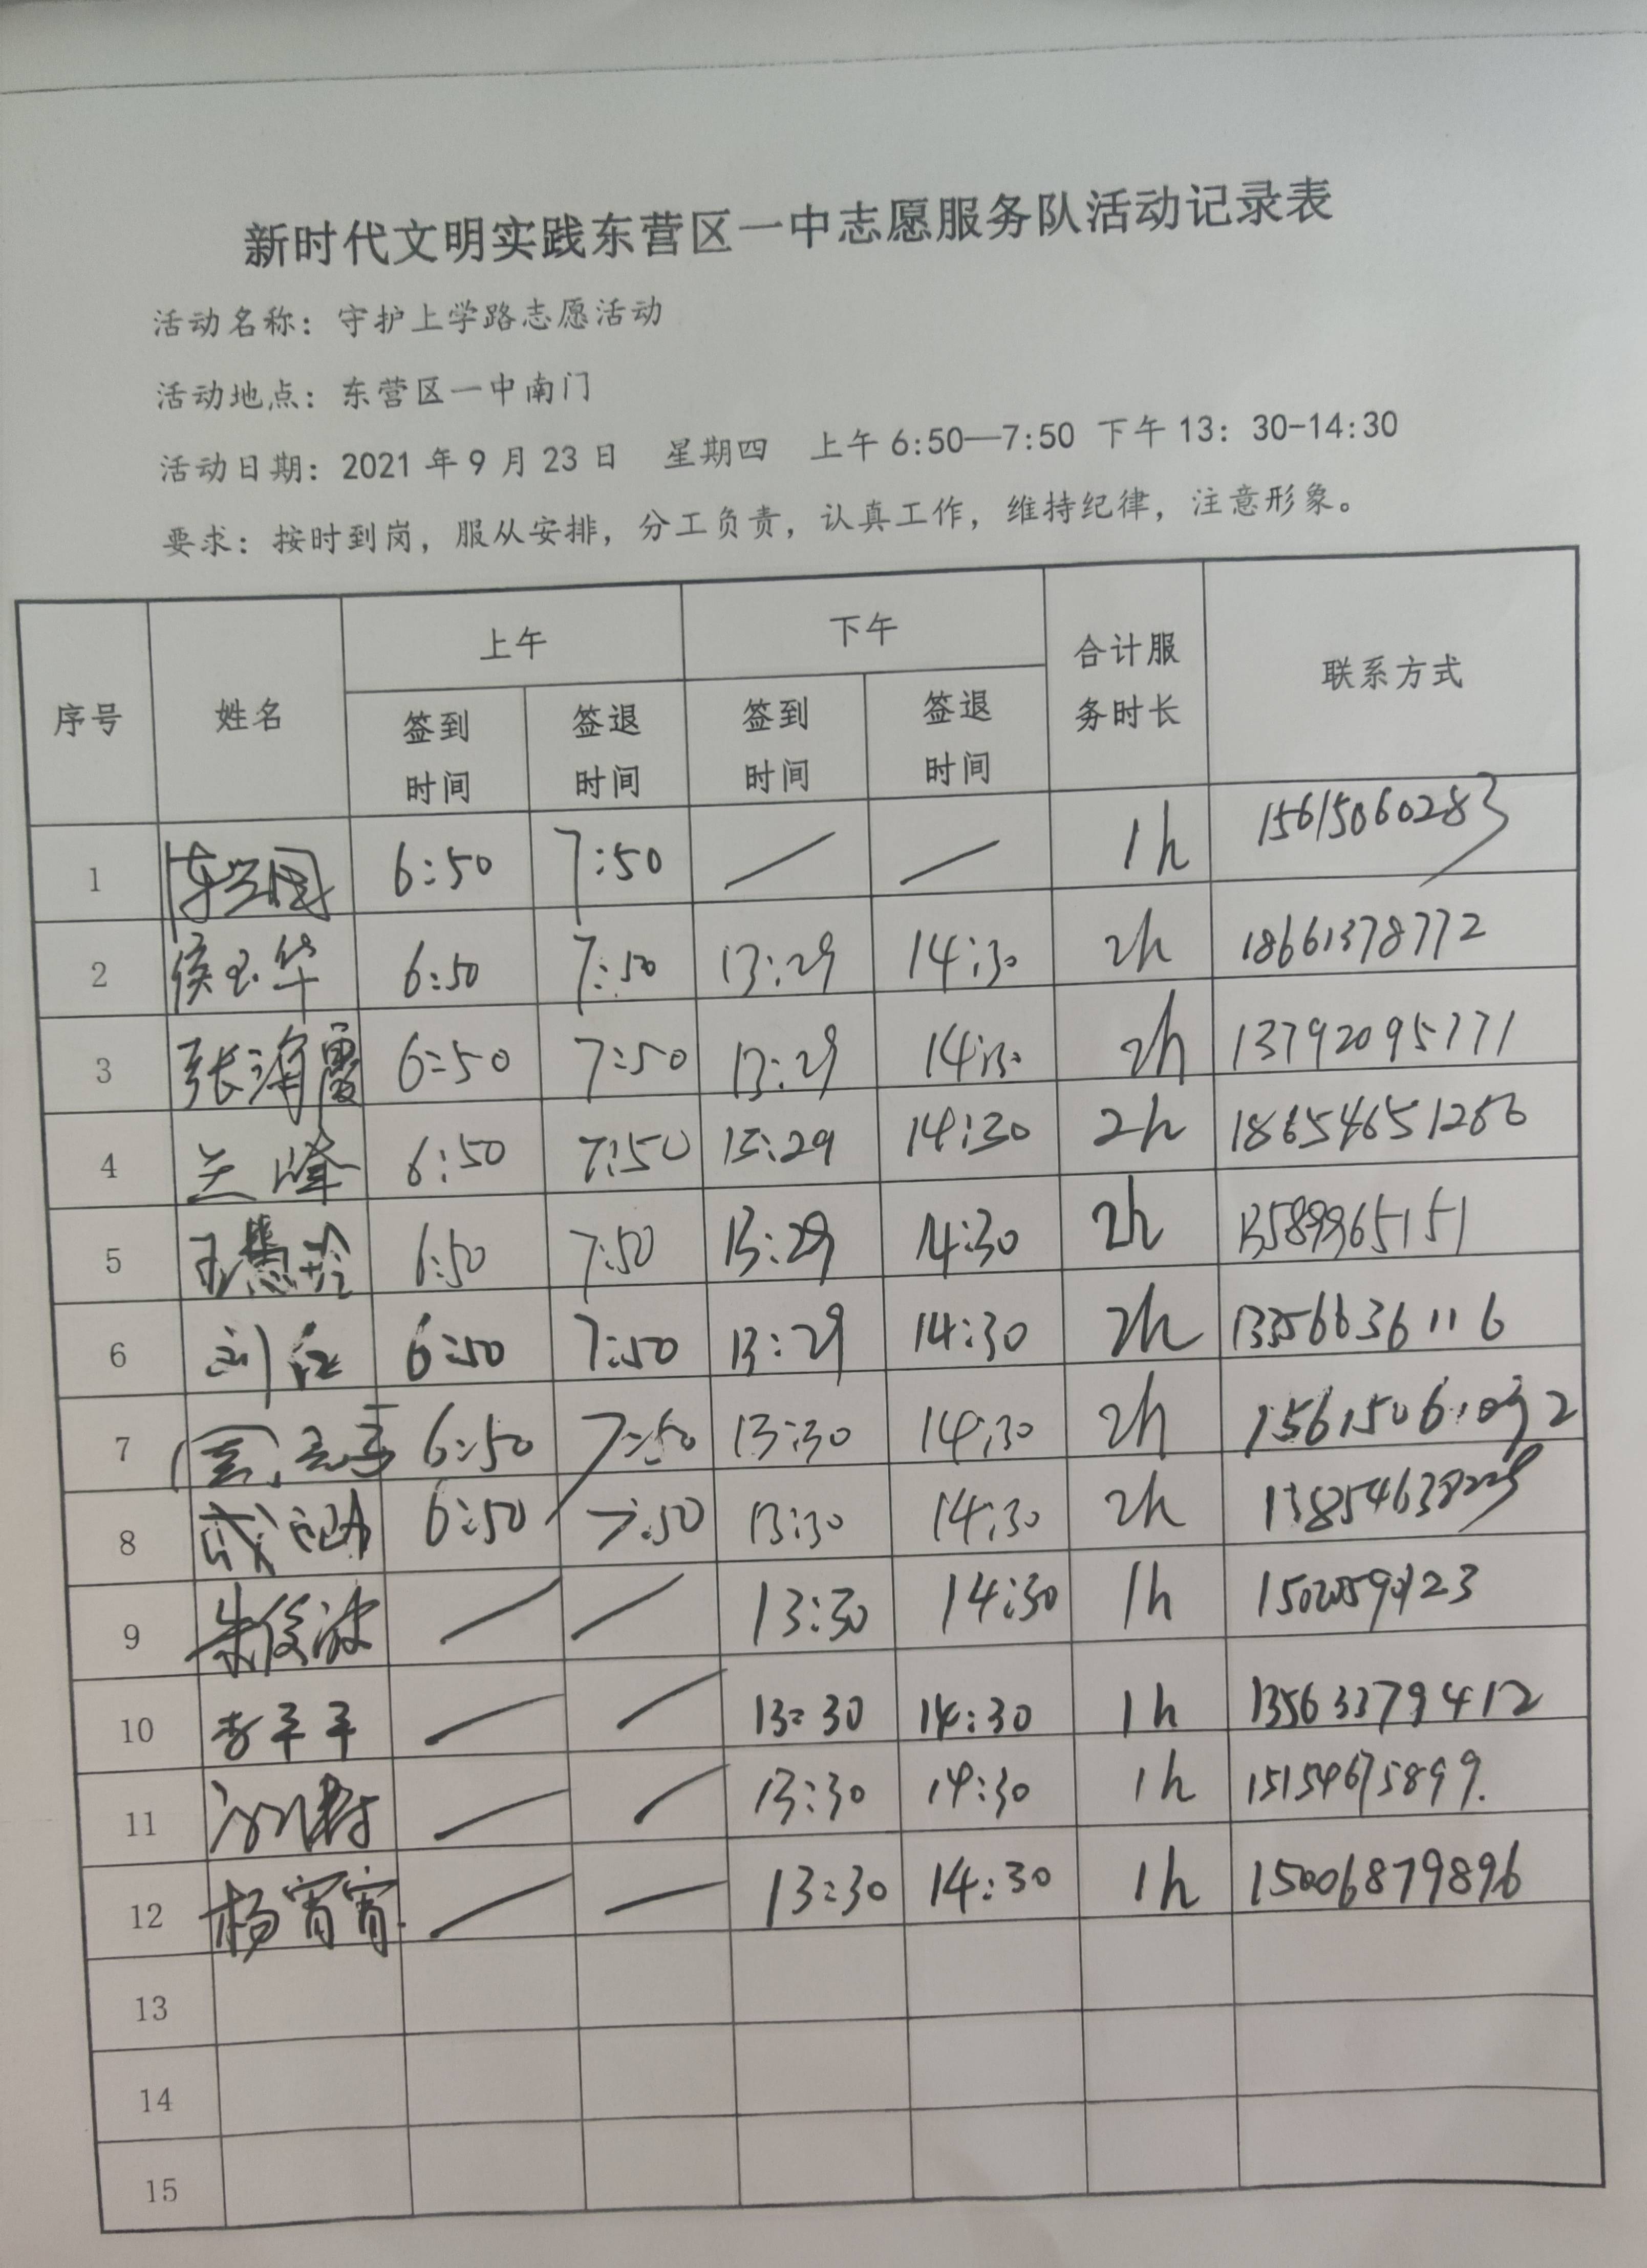 新时代文明实践东营区一中志愿服务队活动记录表
活动名称：守护上学路志愿活动
活动地点：东营区一中南门
活动日期：2021年9月23日 星期四 上午6:50—7:50 下午13：30-14:30
要求：按时到岗，服从安排，分工负责，认真工作，维持纪律，注意形象。
序号 姓名 上午 下午 合计服务时长 联系方式
签到时间 签退时间 签到时间 签退时间
1 6:50 7:50 / / 1h 15615060283
2 侯玉华 6:50 7:50 13:29 14:30 2h 18661378772
3 张海霞 6:50 7:50 13:29 14:30 2h 13792095771
4 兰峰 6:50 7:50 15:29 14:30 2h 18654651286
5 6:50 7:50 13:29 14:30 2h 13589965151
6 刘红 6:50 7:50 13:29 14:30 2h 13356636116
7 6:50 7:50 13:30 14:30 2h
8 6:50 7:50 13:30 14:30 2h
9 朱俊波 / / 13:30 14:30 1h
10 李平平 / / 13:30 14:30 1h 13563379412
11 / / 13:30 14:30 1h 15154675899.
12 杨宵宵 / / 13:30 14:30 1h 15006879896
13
14
15